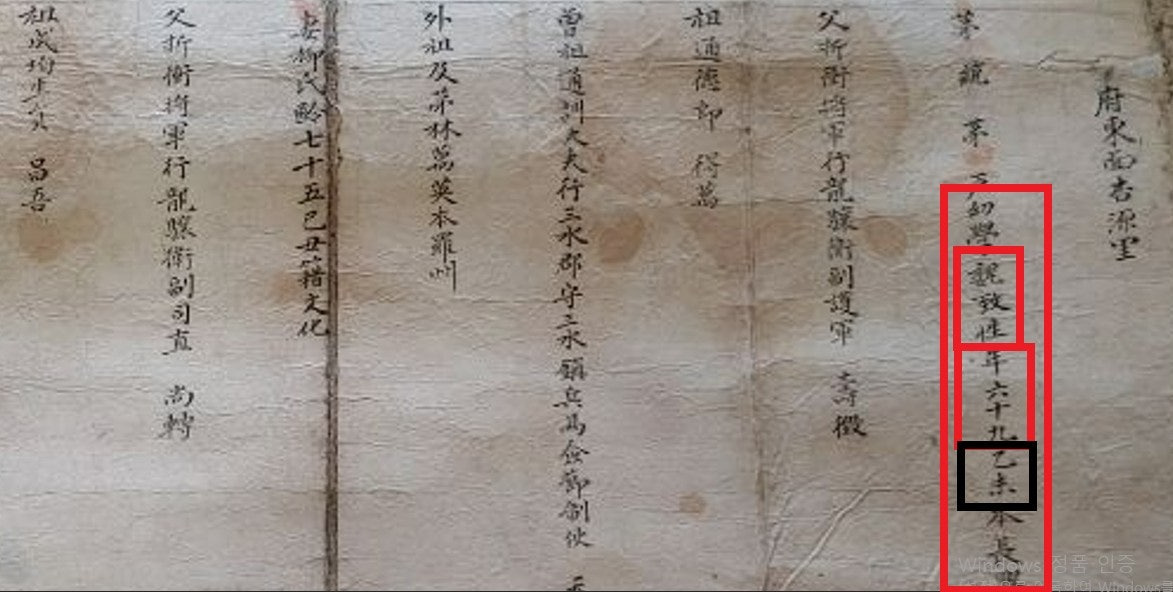 府東面杏源里
第 統 第 戶幼學魏致性年六十九乙未本長
父折衝將軍行龍驤衛副護軍 壽徵
祖通德郞 得萬
曾祖通訓大夫行三水郡守三水鎭兵馬僉節制使
外祖及第林萬英本羅州
妻柳氏齡七十五己丑籍文化
父折衝將軍行龍驤衛副司直 尙轉
祖成均生員 昌吾
Windows 정품 인증